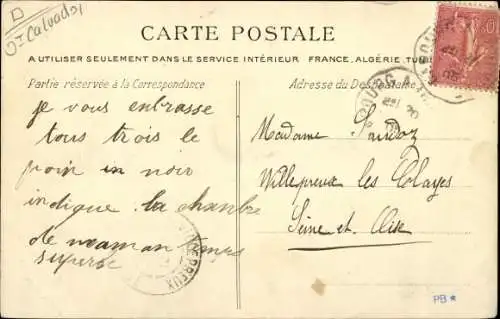 D
Ct Calvados
CARTE POSTALE
A UTILISER SEULEMENT DANS LE SERVICE INTÉRIEUR FRANCE, ALGÉRIE, TUN
Partie réservée à la Correspondance
Adresse du Destinataire
je vous enbrasse
tous trois le
poin in noir
indique la chanbre
de maman
superbe
Madame Sandoz
Villepreux les Clayes
Seine et Oise
PB *